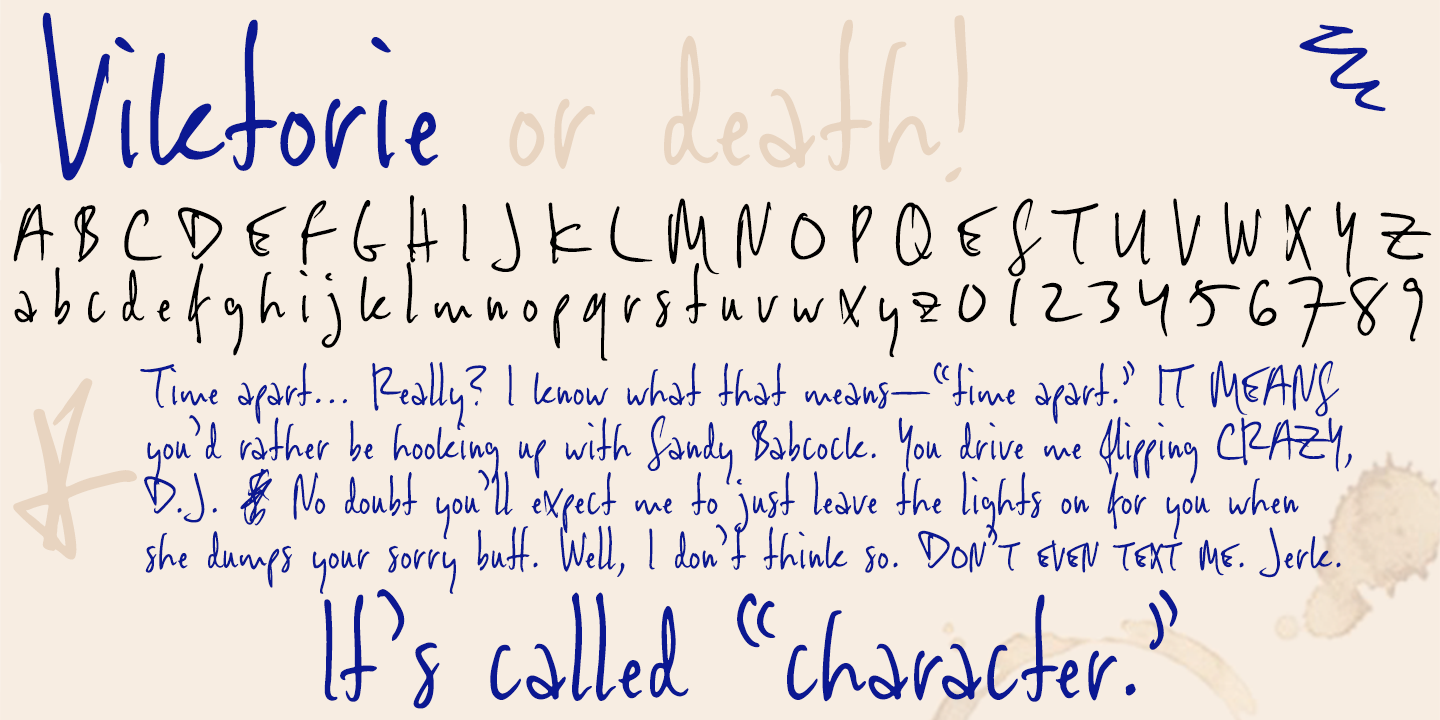 Viktorie or death!
A B C D E F G H I J K L M N O P Q E S T U V W X Y Z
a b c d e f g h i j k l m n o p q r s t u v w x y z 0 1 2 3 4 5 6 7 8 9
Time apart... Really? I know what that means—“time apart.” IT MEANS
you’d rather be hooking up with Sandy Babcock. You drive me flipping CRAZY,
D.J. No doubt you’ll expect me to just leave the lights on for you when
she dumps your sorry butt. Well, I don’t think so. DON’T EVEN TEXT ME. Jerk.
It’s called “character.”